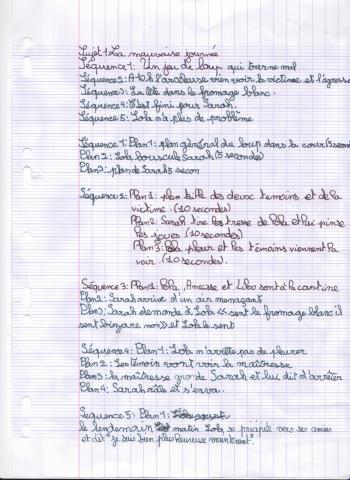 Sujet 1: La mauvaise journée
Séquence 1: Un jeu de loup qui tourne mal
Séquence 2: A 10h l'arceleuse vien voir la victime et l'agresse
Séquence 3: La tête dans le fromage blanc.
Séquence 4: C'est fini pour Sarah.
Séquence 5: Lola n'a plus de problème
Séquence 1: Plan 1: plan général du loup dans la cour (5 secon
Plan 2: Lola bouscule Sarah (5 secondes)
Plan 3: plan de Sarah 5 secon
Séquence 2: Plan 1: plan taille des deux temoins et de la
victime. (10 secondes)
Plan 2: Sarah tire les tresse de lola et lui pinse
les joues (10 secondes)
Plan 3: lola pleur et les témoins viennent la
voir. (10 secondes).
Séquence 3: Plan 1: lola, Anaisse et Lilo sont à la cantine
Plan 2: Sarah arrive d'un air menaçant
Plan 3: Sarah demande à Lola << sent le fromage blanc il
sent bizare non >> et Lola le sent
Séquence 4: Plan 1: Lola n'arrête pas de pleurer
Plan 2: Les témoin vont voir la maîtresse
Plan 3: la maîtresse gronde Sarah et lui dit d'arrêter
Plan 4: Sarah râle et s'en va.
Séquence 5: Plan 1:
le lendemain matin Lola se précipite vers ses amies
et dit "je suis bien plus heureuse maintenant".